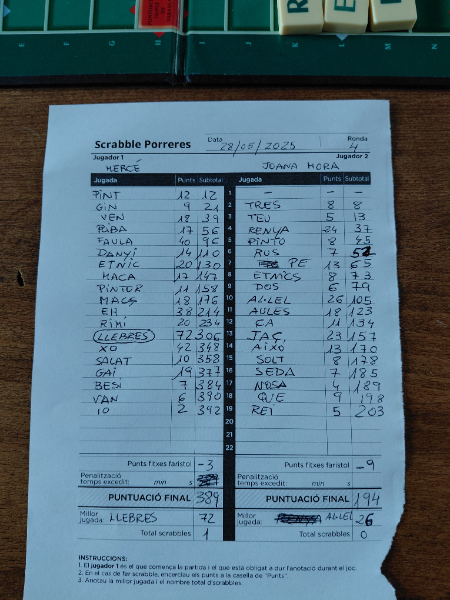 E F G H I J K L M N
R E
Scrabble Porreres Data 28/05/2025 Ronda 4
Jugador 1 MERCÈ JOANA MORA Jugador 2
Jugada Punts Subtotal Jugada Punts Subtotal
PINT 12 12 1 – –
GIN 9 21 2 TRES 8 8
VEN 18 39 3 TEU 5 13
17 56 4 RENYA 24 37
FAULA 40 96 5 PINTO 8 45
DANYI 14 110 6 RUS 7 52
ETNIC 20 130 7 PE 13 65
MACA 17 147 8 ETNICS 8 73
PINTOR 11 158 9 DOS 6 79
MAÇS 18 176 10 AL·LEL 26 105
EH 38 214 11 AULES 18 123
RIMI 20 234 12 ÇA 11 134
LLEBRES 72 306 13 JAÇ 23 157
XO 42 348 14 AIXÒ 13 170
SALAT 10 358 15 SOLT 8 178
GAI 19 377 16 SEDA 7 185
BESI 7 384 17 NOSA 4 189
VAN 6 390 18 QUE 9 198
IO 2 392 19 REI 5 203
20
21
22
Punts fitxes faristol -3 Punts fitxes faristol -9
Penalització temps excedit: min s Penalització temps excedit: min s
PUNTUACIÓ FINAL 389 PUNTUACIÓ FINAL 194
Millor jugada: LLEBRES 72 Millor jugada: AL·LEL 26
Total scrabbles 1 Total scrabbles 0
INSTRUCCIONS:
1. El jugador 1 és el que comença la partida i el que està obligat a dur l'anotació durant el joc.
2. En el cas de fer scrabble, encercleu els punts a la casella de "Punts".
3. Anotau la millor jugada i el nombre total d'scrabbles.